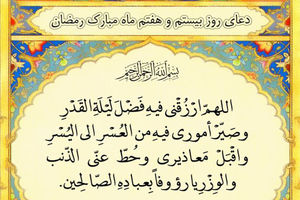 دعای روز بیستم و هفتم ماه مبارک رمضان
بسم الله الرحمن الرحیم
اللهمّ ارْزُقْنی فیهِ فَضْلَ لَیْلَةِ القَدْرِ
وصَیّرْ أموری فیهِ من العُسْرِ الی الیُسْرِ
واقْبَلْ مَعاذیری وحُطّ عنّی الذّنب
والوِزْرِ یا رؤوفاً بِعبادِهِ الصّالحِین.